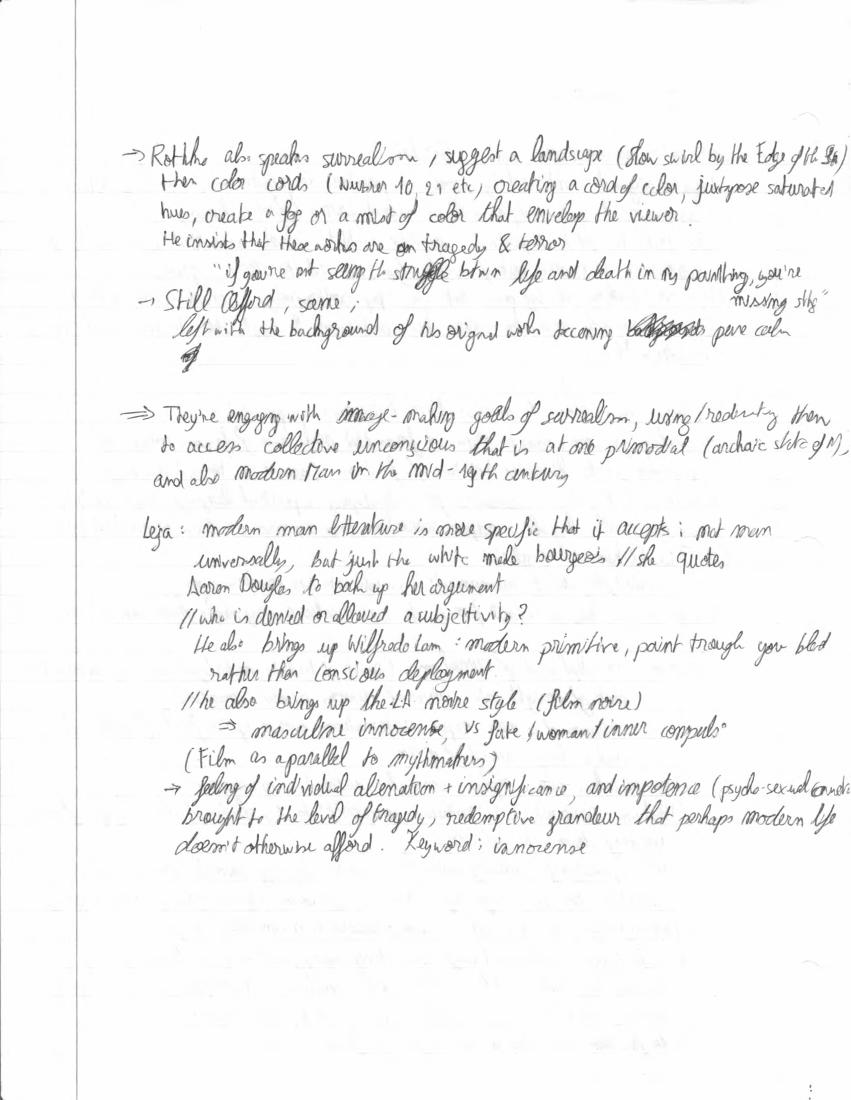 → Rothko also speaks surrealism, suggest a landscape (Slow swirl by the Edge of the Sea)
then color cords (Number 10, 21 etc) creating a cord of color, juxtapose saturated
hues, create a fog or a mist of color that envelop the viewer.
He insists that these works are on tragedy & terror
"if you're not seeing th struggle btwn life and death in my painting, you're
missing sthg"
→ Still Clifford, same;
left with the background of his original works becoming pure color
⇒ They're engaging with image-making goals of surrealism, using/redirecting them
to access collective unconscious that is at one primodial (archaic state of M),
and also modern Man in the mid-19th century
Leja: modern man litterature is more specific that it accepts: not man
universally, but just the white male bourgeois // she quotes
Aaron Douglas to back up her argument
// who is denied or allowed a subjectivity?
He also brings up Wilfredo Lam: modern primitive, paint trough your blod
rather than conscious deployment.
// he also brings up the LA noire style (film noire)
⇒ masculine innocense, vs fate/woman/inner compuls°
(Film as a parallel to mythmakers)
→ feeling of individual alienation + insignificance, and impotence (psycho-sexual
brought to the level of tragedy, redemptive grandeur that perhaps modern life
doesn't otherwise afford. Keyword: innocense